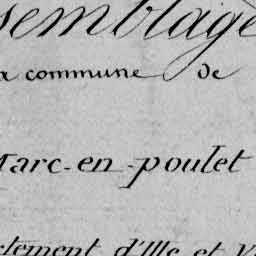 semblage
a commune de
Marc-en-poulet
rtement d'Ille et Vi